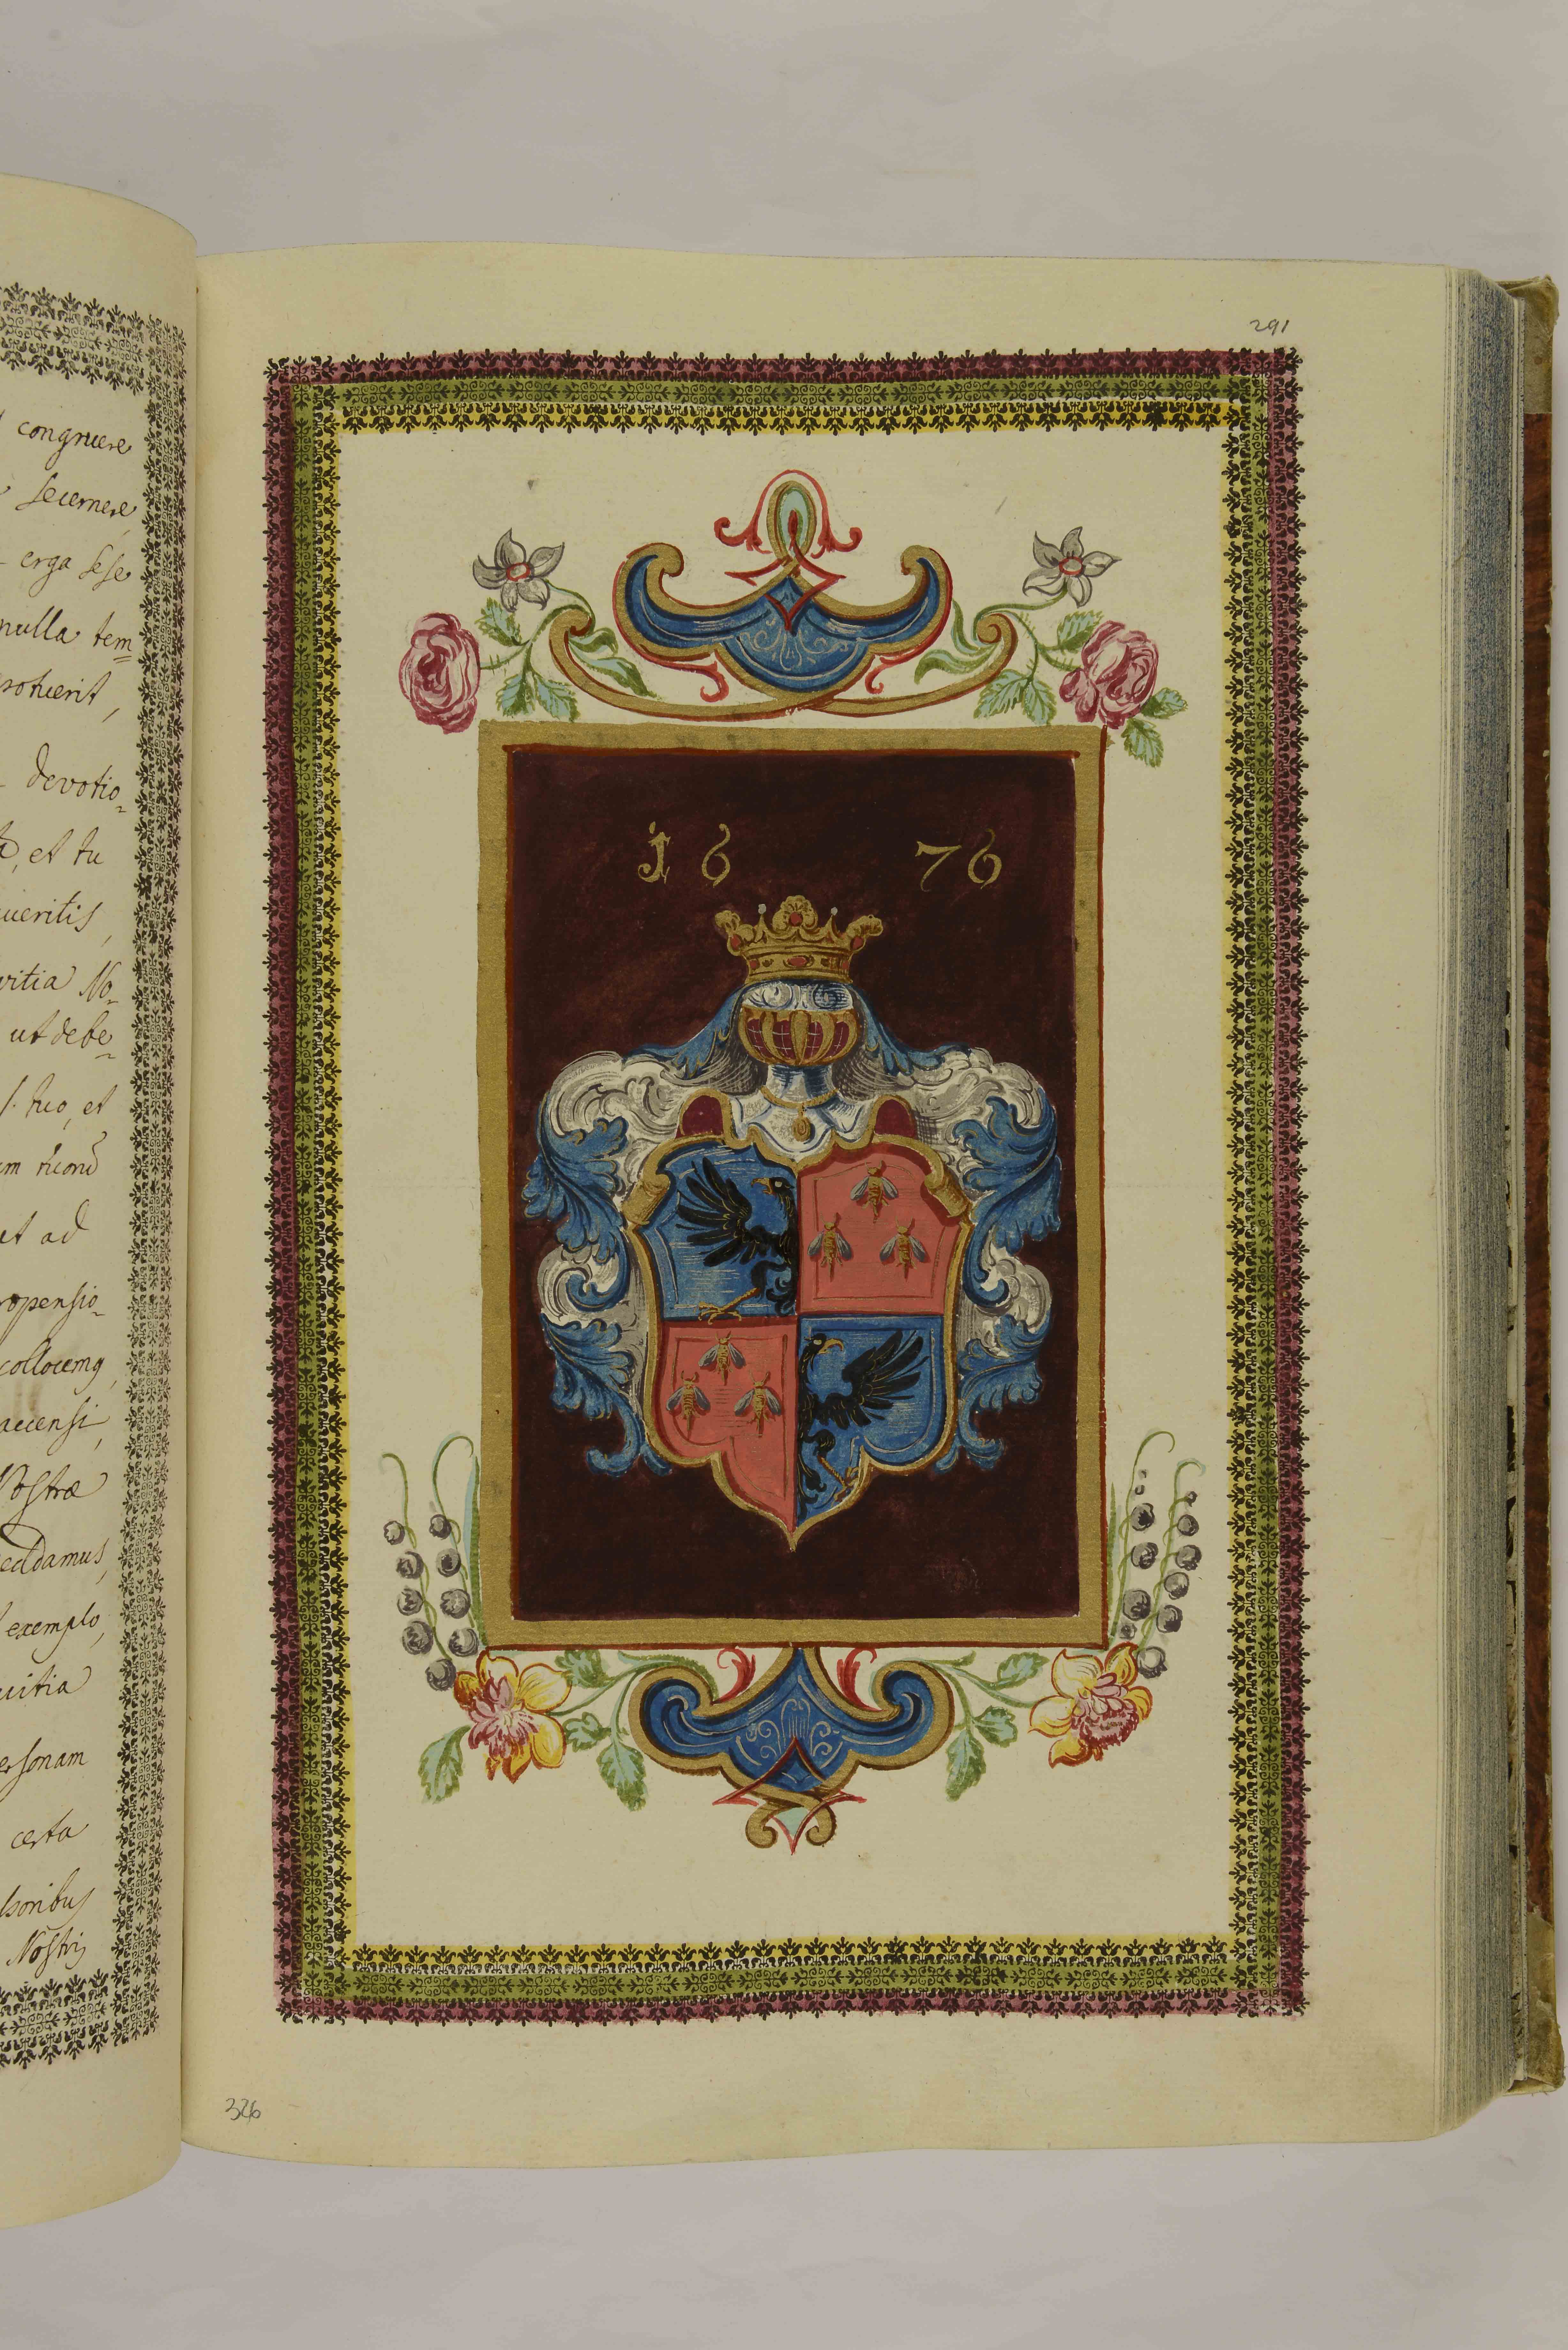 congruere
secernere,
erga sese
nulla tem=
potuerit,
devotio=
et tu
ueritis,
vitia No=
ut debe=
tuo, et
et ad
ropensio=
collocemq,
accensi,
Vostræ
eddamus,
exemplo,
uitia
ersonam
certa
soribus
Nostris
291
16 76
326